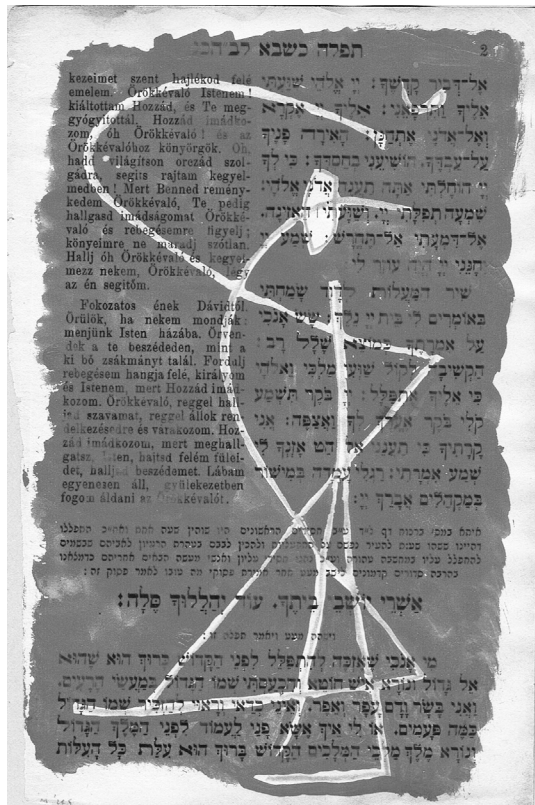 תפלה כשבא לב הכנ
2
kezeimet szent hajlékod felé
emelem. Örökkévaló Istenem!
kiáltottam Hozzád, és Te meg-
gyógyítottál. Hozzád imádko-
zom, óh Örökkévaló! és az
Örökkévalóhoz könyörgök. Oh,
hadd világítson orczád szol-
gádra, segits rajtam kegyel-
medben! Mert Benned remény-
kedem Örökkévaló, Te pedig
hallgasd imádságomat Örökké-
való és rebegésemre figyelj;
könyeimre ne maradj szótlan.
Hallj óh Örökkévaló és kegyel-
mezz nekem, Örökkévaló, légy
az én segitőm.
Fokozatos ének Dávidtól.
Örülök, ha nekem mondják:
menjünk Isten házába. Örven-
dek a te beszédeden, mint a
ki bő zsákmányt talál. Fordulj
rebegésem hangja felé, királyom
és Istenem, mert Hozzád imád-
kozom. Örökkévaló, reggel hall-
jad szavamat, reggel állok ren-
delkezésedre és várakozom. Hoz-
zád imádkozom, mert meghall-
gatsz. Isten, hajtsd felém fülei-
det, halljad beszédemet. Lábam
egyenesen áll, gyülekezetben
fogom áldani az Örökkévalót.
אֶל־דְּבִיר קָדְשֶׁךָ: יְיָ אֱלֹהַי שִׁוַּעְתִּי
אֵלֶיךָ וַתִּרְפָּאֵנִי: אֵלֶיךָ יְיָ אֶקְרָא
וְאֶל־אֲדֹנָי אֶתְחַנָּן: הָאִירָה פָנֶיךָ
עַל־עַבְדֶּךָ, הוֹשִׁיעֵנִי בְחַסְדֶּךָ: כִּי לְךָ
יְיָ הוֹחָלְתִּי אַתָּה תַעֲנֶה אֲדֹנָי אֱלֹהָי:
שִׁמְעָה תְפִלָּתִי יְיָ וְשַׁוְעָתִי הַאֲזִינָה,
אֶל־דִּמְעָתִי אַל־תֶּחֱרַשׁ, שְׁמַע יְיָ
וְחָנֵּנִי יְיָ הֱיֵה עוֹזֵר לִי:
שִׁיר הַמַּעֲלוֹת לְדָוִד שָׂמַחְתִּי
בְּאוֹמְרִים לִי בֵּית יְיָ נֵלֵךְ: שָׂשׂ אָנֹכִי
עַל אִמְרָתֶךָ כְּמוֹצֵא שָׁלָל רָב:
הַקְשִׁיבָה לְקוֹל שַׁוְעִי מַלְכִּי וֵאלֹהָי
כִּי אֵלֶיךָ אֶתְפַּלָּל: יְיָ בֹּקֶר תִּשְׁמַע
קוֹלִי בֹּקֶר אֶעֱרָךְ לְךָ וַאֲצַפֶּה: אֲנִי
קְרָאתִיךָ כִּי תַעֲנֵנִי אֵל הַט אָזְנְךָ לִי
שְׁמַע אִמְרָתִי: רַגְלִי עָמְדָה בְמִישׁוֹר
בְּמַקְהֵלִים אֲבָרֵךְ יְיָ:
אַשְׁרֵי יוֹשְׁבֵי בֵיתֶךָ, עוֹד יְהַלְלוּךָ סֶּלָה:
מִי אָנֹכִי שֶׁאֶזְכֶּה לְהִתְפַּלֵּל לִפְנֵי הַקָּדוֹשׁ בָּרוּךְ הוּא שֶׁהוּא
אֵל גָּדוֹל וְנוֹרָא אִישׁ חוֹטֵא וְהִכְעַסְתִּי שְׁמוֹ הַגָּדוֹל בְּמַעֲשַׂי הָרָעִים,
וַאֲנִי בָּשָׂר וָדָם עָפָר וָאֵפֶר, וְאֵינִי כְדַאי וְרָאוּי לְהַזְכִּיר שְׁמוֹ הַגָּדוֹל
כַּמָּה פְעָמִים. אוֹ לִי אֵיךְ אֶשָּׂא פָנַי לַעֲמוֹד לִפְנֵי הַמֶּלֶךְ הַגָּדוֹל
וְנוֹרָא מֶלֶךְ מַלְכֵי הַמְּלָכִים הַקָּדוֹשׁ בָּרוּךְ הוּא עִלַּת כָּל הָעִלּוֹת